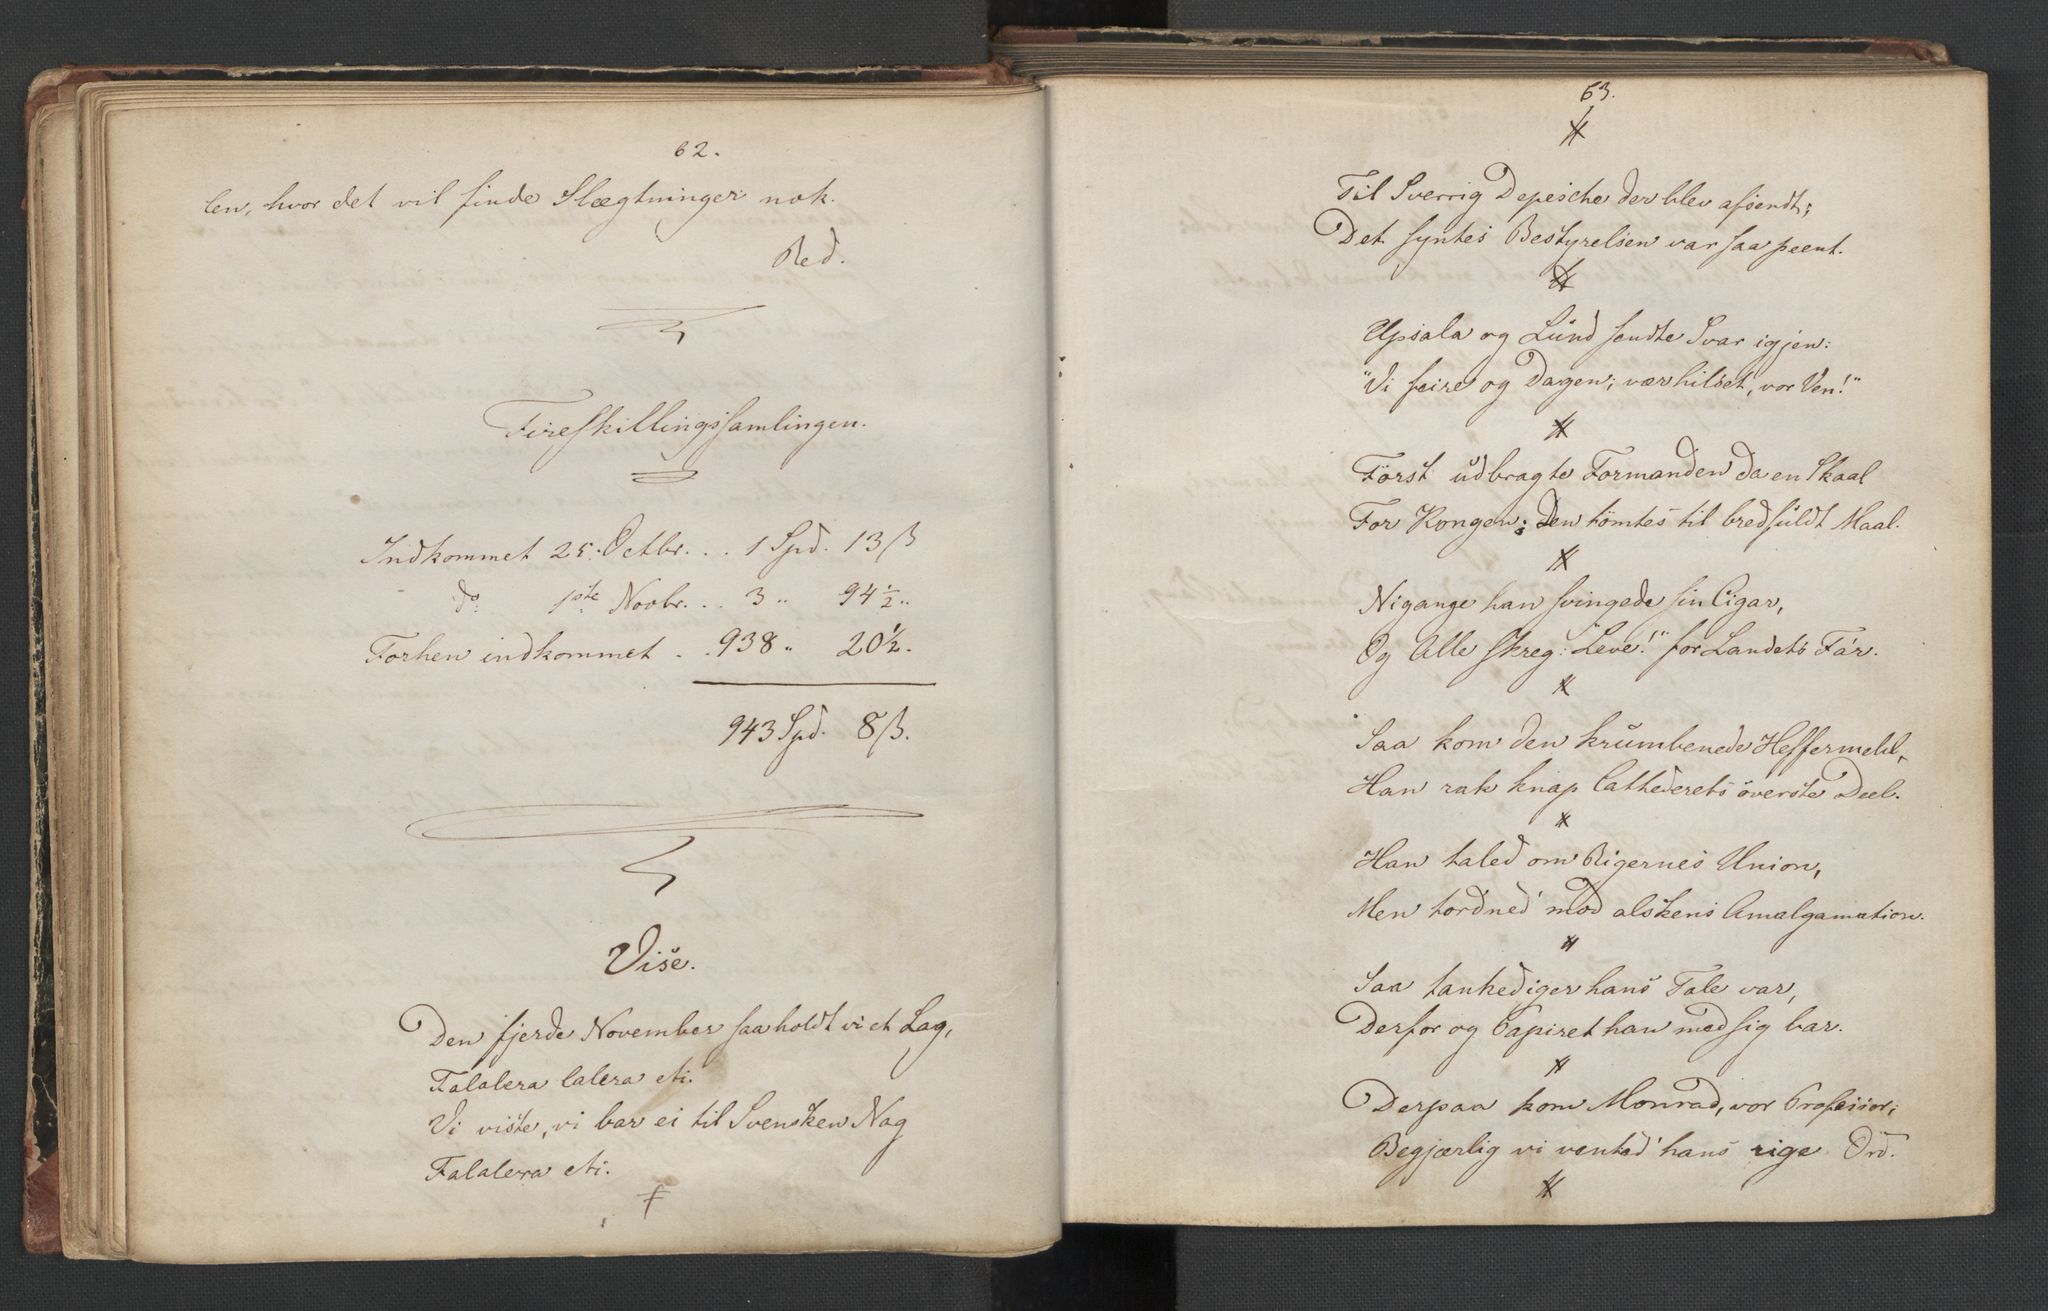 62.
len, hvor det vil finde Slægtninger nok.
Red.
Fireskillingssamlingen.
Indkommet 25. Octbr. . . 1 Spd. 13 ß
do: 1ste Novbr. . . 3 " 94 ½ "
Forhen indkommet . . 938 " 20 ½ .
943 Spd. 8 ß.
Vise.
Den fjerde November saa holdt vi et Lag,
Falalera lalera etc.
Vi viste, vi bar ei til Svensken Nag
Falalera etc.
63.
Til Sverrig Depesche der blev afsendt;
Det syntes Bestyrelsen var saa peent.
Upsala og Lund sendte Svar igjen:
"Vi feire og Dagen; vær hilset, vor Ven!"
Först udbragte Formanden da en Skaal
For Kongen; Den tömtes til bredfuldt Maal.
Ni gange han svingede sin Cigar,
Og Alle skreg: "Leve!" for Landets Fa'r.
Saa kom den krumbenede Heffermehl,
Han rak knap Cathederets överste Deel.
Han taled om Rigernes Union,
Men tordned' mod alskens Amalgamation.
Saa tankediger hans Tale var,
Derfor og Papiret han med sig bar.
Derpaa kom Monrad, vor Professor;
Begjærlig vi vented' hans rige Ord.